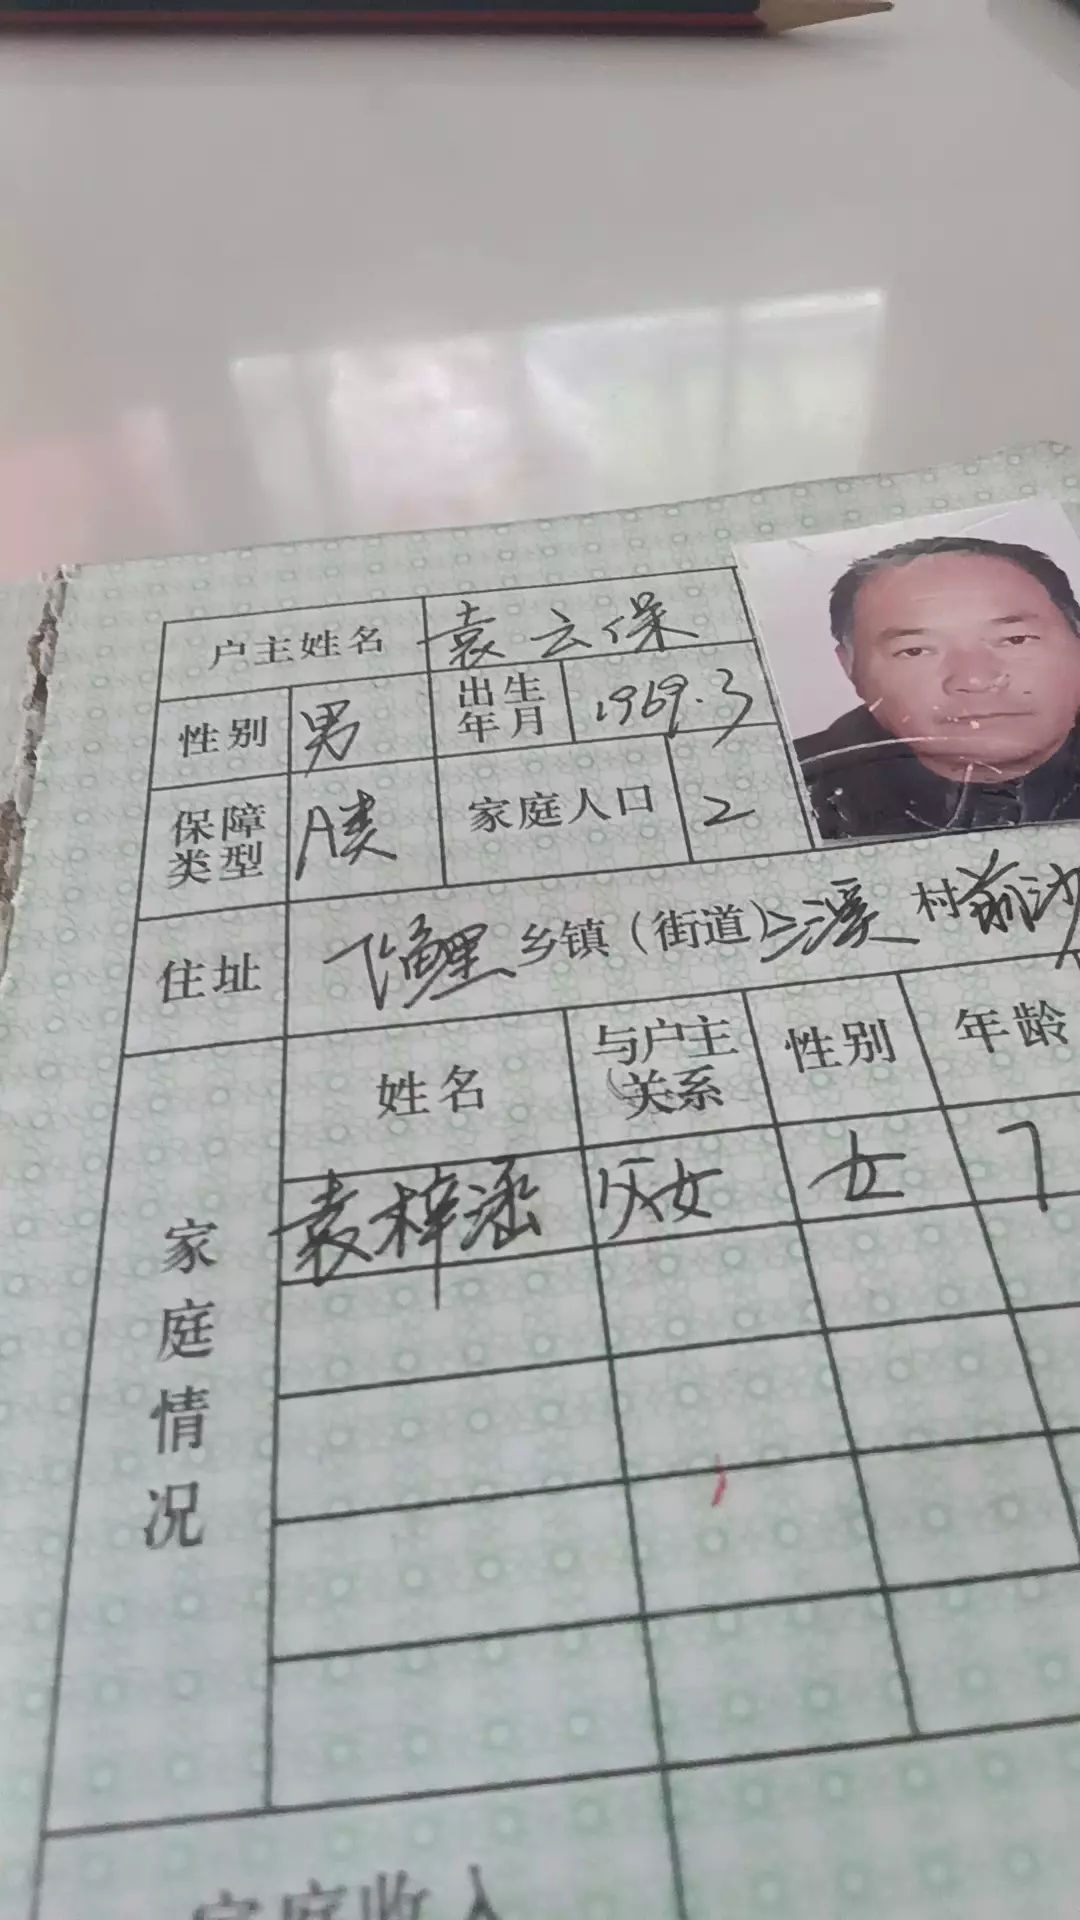 户主姓名 袁云保
性别 男 出生年月 1969.3
保障类型 A类 家庭人口 2
住址 飞鲤乡镇（街道）三溪村前沙
姓名 与户主关系 性别 年龄
袁梓涵 父女 女 7
家庭情况
家庭收入